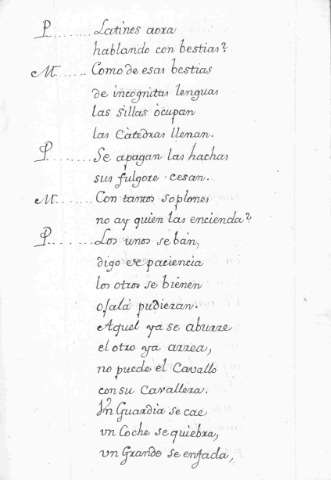 P........ Latines aora
hablando con bestias?
M........ Como de esas bestias
de incognitas lenguas
las sillas òcupan
las Càtedras llenan.
P........ Se apagan las hachas
sus fulgores cesan.
M........ Con tantos soplones
no ay quien las encienda?
P........ Los unos se bàn,
digo es paciencia
los otros se bienen
ojalà pudieran.
Aquel ya se aburre
el otro ya arrea,
no puede el Cavallo
con su Cavallera.
Vn Guardia se cae
vn Coche se quiebra,
vn Grande se enfada,